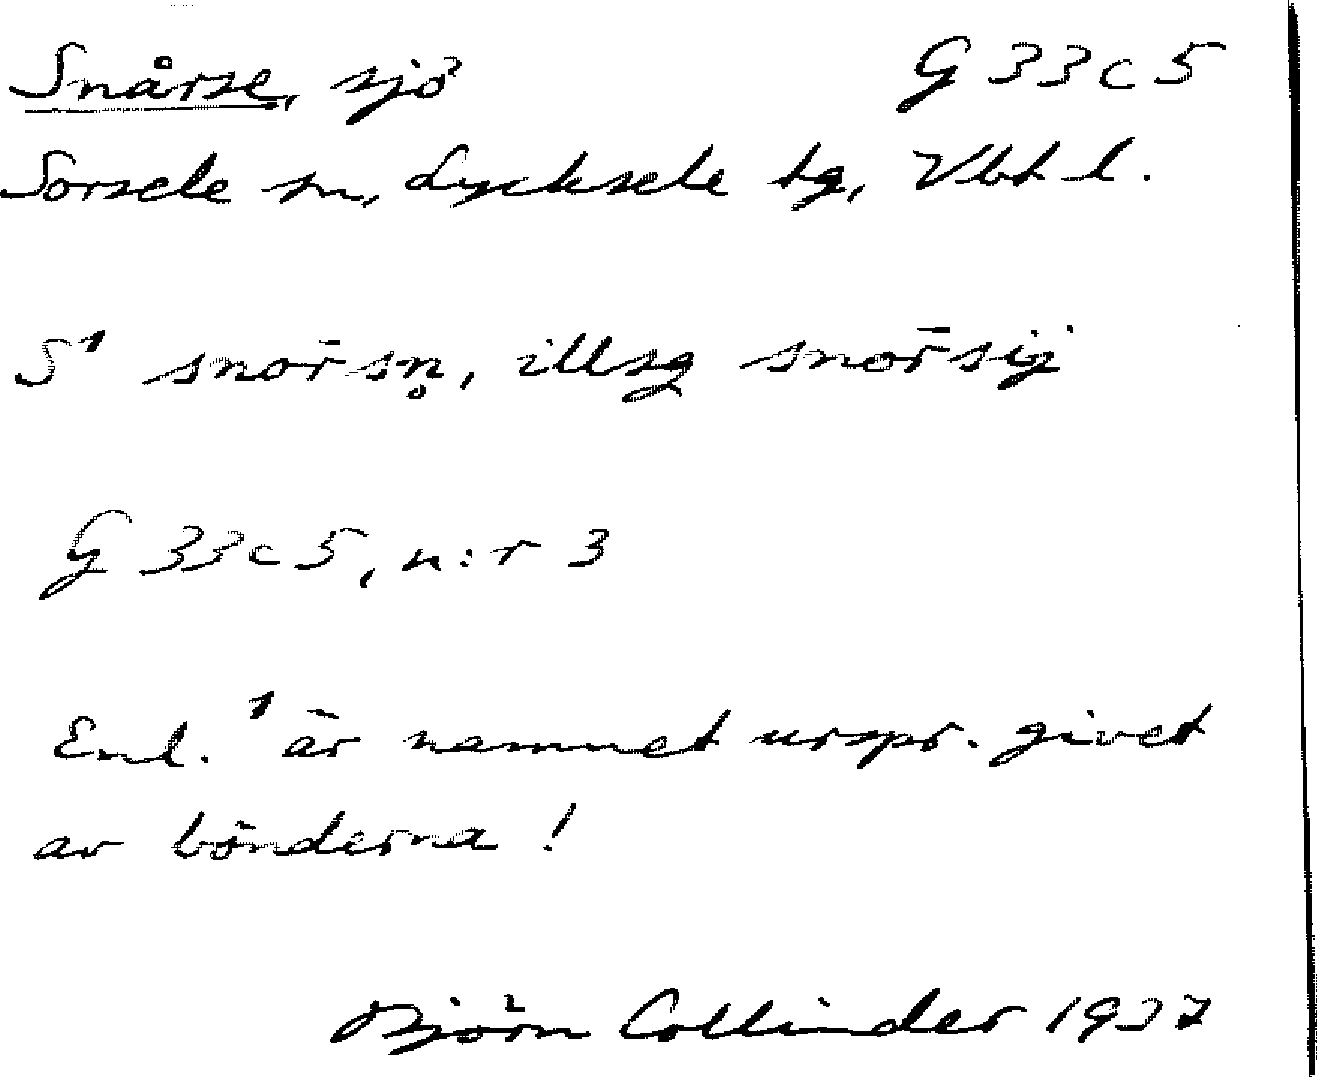 Snårse, sjö G 33 c 5
Sorsele sn, Lycksele tg, Vbt l.
S¹ snor̄sn̥, illsg snor̄sij
G 33 c 5, n:r 3
Enl. ¹ är namnet urspr. givet
av bönderna!
Björn Collinder 1937